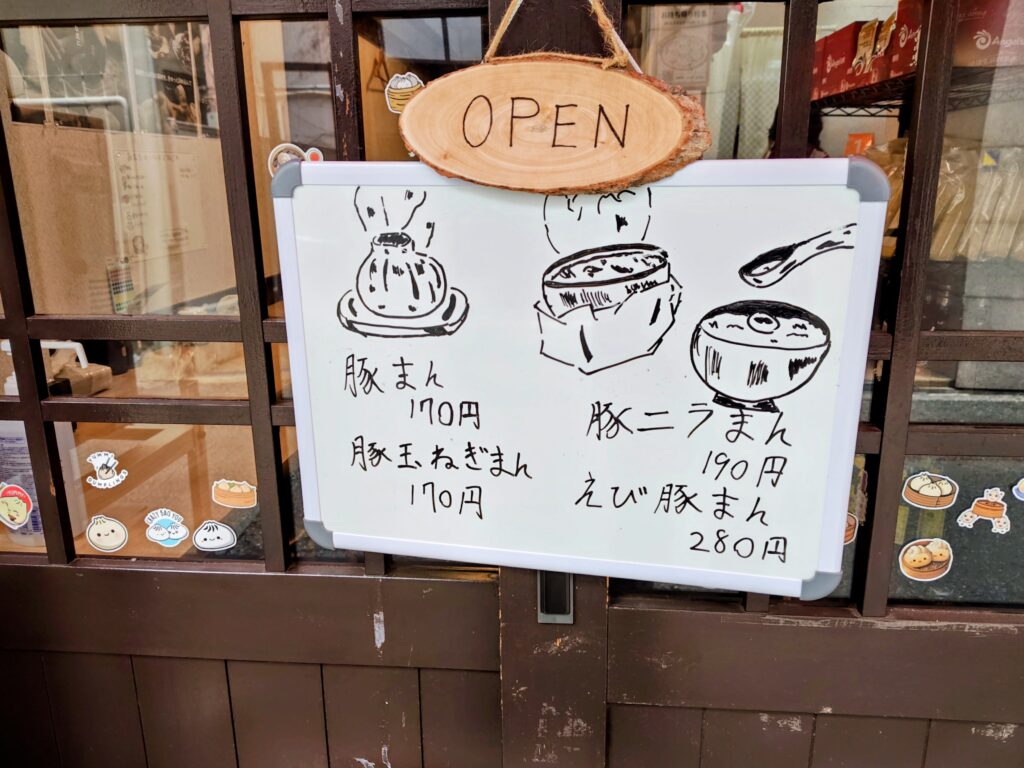 OPEN
豚まん
170円
豚玉ねぎまん
170円
豚ニラまん
190円
えび豚まん
280円
YUMMY
DUMPLINGS
CRAZY BAO YOU